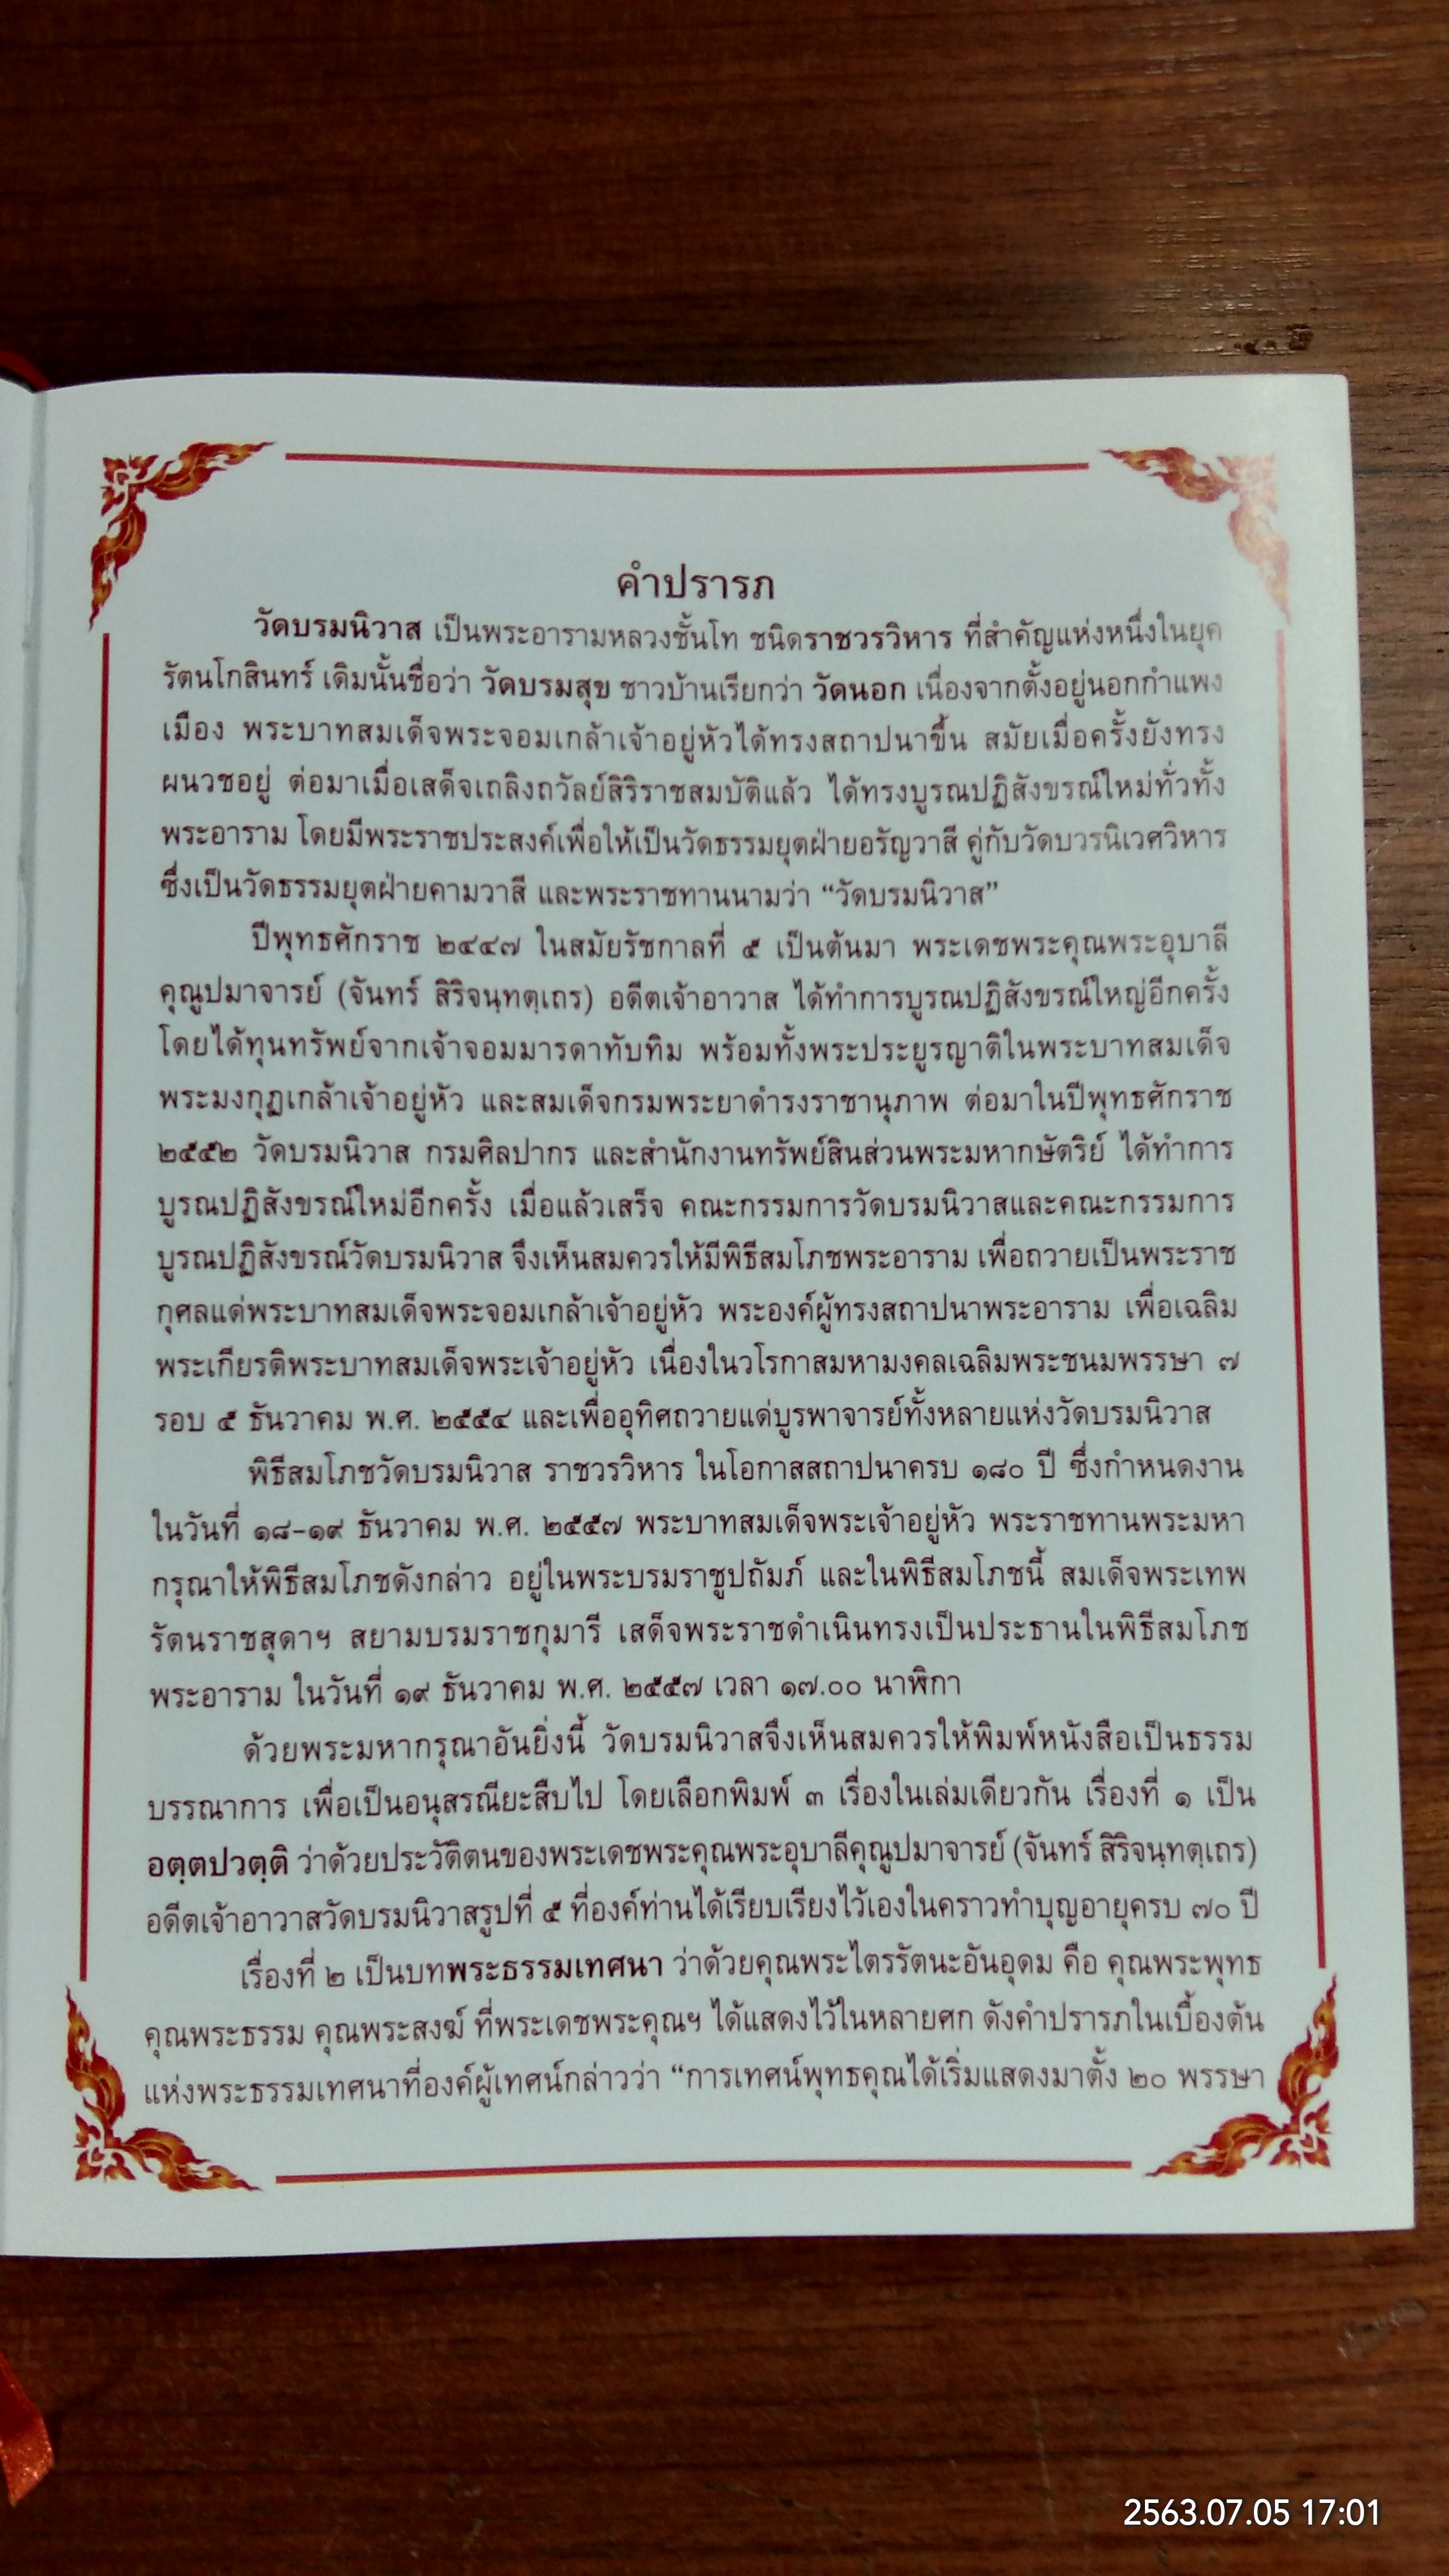 คำปรารภ
วัดบรมนิวาส เป็นพระอารามหลวงชั้นโท ชนิดราชวรวิหาร ที่สำคัญแห่งหนึ่งในยุค
รัตนโกสินทร์ เดิมนั้นชื่อว่า วัดบรมสุข ชาวบ้านเรียกว่า วัดนอก เนื่องจากตั้งอยู่นอกกำแพง
เมือง พระบาทสมเด็จพระจอมเกล้าเจ้าอยู่หัวได้ทรงสถาปนาขึ้น สมัยเมื่อครั้งยังทรง
ผนวชอยู่ ต่อมาเมื่อเสด็จเถลิงถวัลย์สิริราชสมบัติแล้ว ได้ทรงบูรณปฏิสังขรณ์ใหม่ทั่วทั้ง
พระอาราม โดยมีพระราชประสงค์เพื่อให้เป็นวัดธรรมยุตฝ่ายอรัญวาสี คู่กับวัดบวรนิเวศวิหาร
ซึ่งเป็นวัดธรรมยุตฝ่ายคามวาสี และพระราชทานนามว่า “วัดบรมนิวาส”
ปีพุทธศักราช ๒๔๔๗ ในสมัยรัชกาลที่ ๕ เป็นต้นมา พระเดชพระคุณพระอุบาลี
คุณูปมาจารย์ (จันทร์ สิริจนฺทตฺเถร) อดีตเจ้าอาวาส ได้ทำการบูรณปฏิสังขรณ์ใหญ่อีกครั้ง
โดยได้ทุนทรัพย์จากเจ้าจอมมารดาทับทิม พร้อมทั้งพระประยูรญาติในพระบาทสมเด็จ
พระมงกุฏเกล้าเจ้าอยู่หัว และสมเด็จกรมพระยาดำรงราชานุภาพ ต่อมาในปีพุทธศักราช
๒๕๕๒ วัดบรมนิวาส กรมศิลปากร และสำนักงานทรัพย์สินส่วนพระมหากษัตริย์ ได้ทำการ
บูรณปฏิสังขรณ์ใหม่อีกครั้ง เมื่อแล้วเสร็จ คณะกรรมการวัดบรมนิวาสและคณะกรรมการ
บูรณปฏิสังขรณ์วัดบรมนิวาส จึงเห็นสมควรให้มีพิธีสมโภชพระอาราม เพื่อถวายเป็นพระราช
กุศลแด่พระบาทสมเด็จพระจอมเกล้าเจ้าอยู่หัว พระองค์ผู้ทรงสถาปนาพระอาราม เพื่อเฉลิม
พระเกียรติพระบาทสมเด็จพระเจ้าอยู่หัว เนื่องในวโรกาสมหามงคลเฉลิมพระชนมพรรษา ๗
รอบ ๕ ธันวาคม พ.ศ. ๒๕๕๔ และเพื่ออุทิศถวายแด่บูรพาจารย์ทั้งหลายแห่งวัดบรมนิวาส
พิธีสมโภชวัดบรมนิวาส ราชวรวิหาร ในโอกาสสถาปนาครบ ๑๘๐ ปี ซึ่งกำหนดงาน
ในวันที่ ๑๘-๑๙ ธันวาคม พ.ศ. ๒๕๕๗ พระบาทสมเด็จพระเจ้าอยู่หัว พระราชทานพระมหา
กรุณาให้พิธีสมโภชดังกล่าว อยู่ในพระบรมราชูปถัมภ์ และในพิธีสมโภชนี้ สมเด็จพระเทพ
รัตนราชสุดาฯ สยามบรมราชกุมารี เสด็จพระราชดำเนินทรงเป็นประธานในพิธีสมโภช
พระอาราม ในวันที่ ๑๙ ธันวาคม พ.ศ. ๒๕๕๗ เวลา ๑๗.๐๐ นาฬิกา
ด้วยพระมหากรุณาอันยิ่งนี้ วัดบรมนิวาสจึงเห็นสมควรให้พิมพ์หนังสือเป็นธรรม
บรรณาการ เพื่อเป็นอนุสรณียะสืบไป โดยเลือกพิมพ์ ๓ เรื่องในเล่มเดียวกัน เรื่องที่ ๑ เป็น
อตฺตปวตฺติ ว่าด้วยประวัติตนของพระเดชพระคุณพระอุบาลีคุณูปมาจารย์ (จันทร์ สิริจนฺทตฺเถร)
อดีตเจ้าอาวาสวัดบรมนิวาสรูปที่ ๕ ที่องค์ท่านได้เรียบเรียงไว้เองในคราวทำบุญอายุครบ ๗๐ ปี
เรื่องที่ ๒ เป็นบทพระธรรมเทศนา ว่าด้วยคุณพระไตรรัตนะอันอุดม คือ คุณพระพุทธ
คุณพระธรรม คุณพระสงฆ์ ที่พระเดชพระคุณฯ ได้แสดงไว้ในหลายศก ดังคำปรารภในเบื้องต้น
แห่งพระธรรมเทศนาที่องค์ผู้เทศน์กล่าวว่า “การเทศน์พุทธคุณได้เริ่มแสดงมาตั้ง ๒๐ พรรษา
2563.07.05 17:01